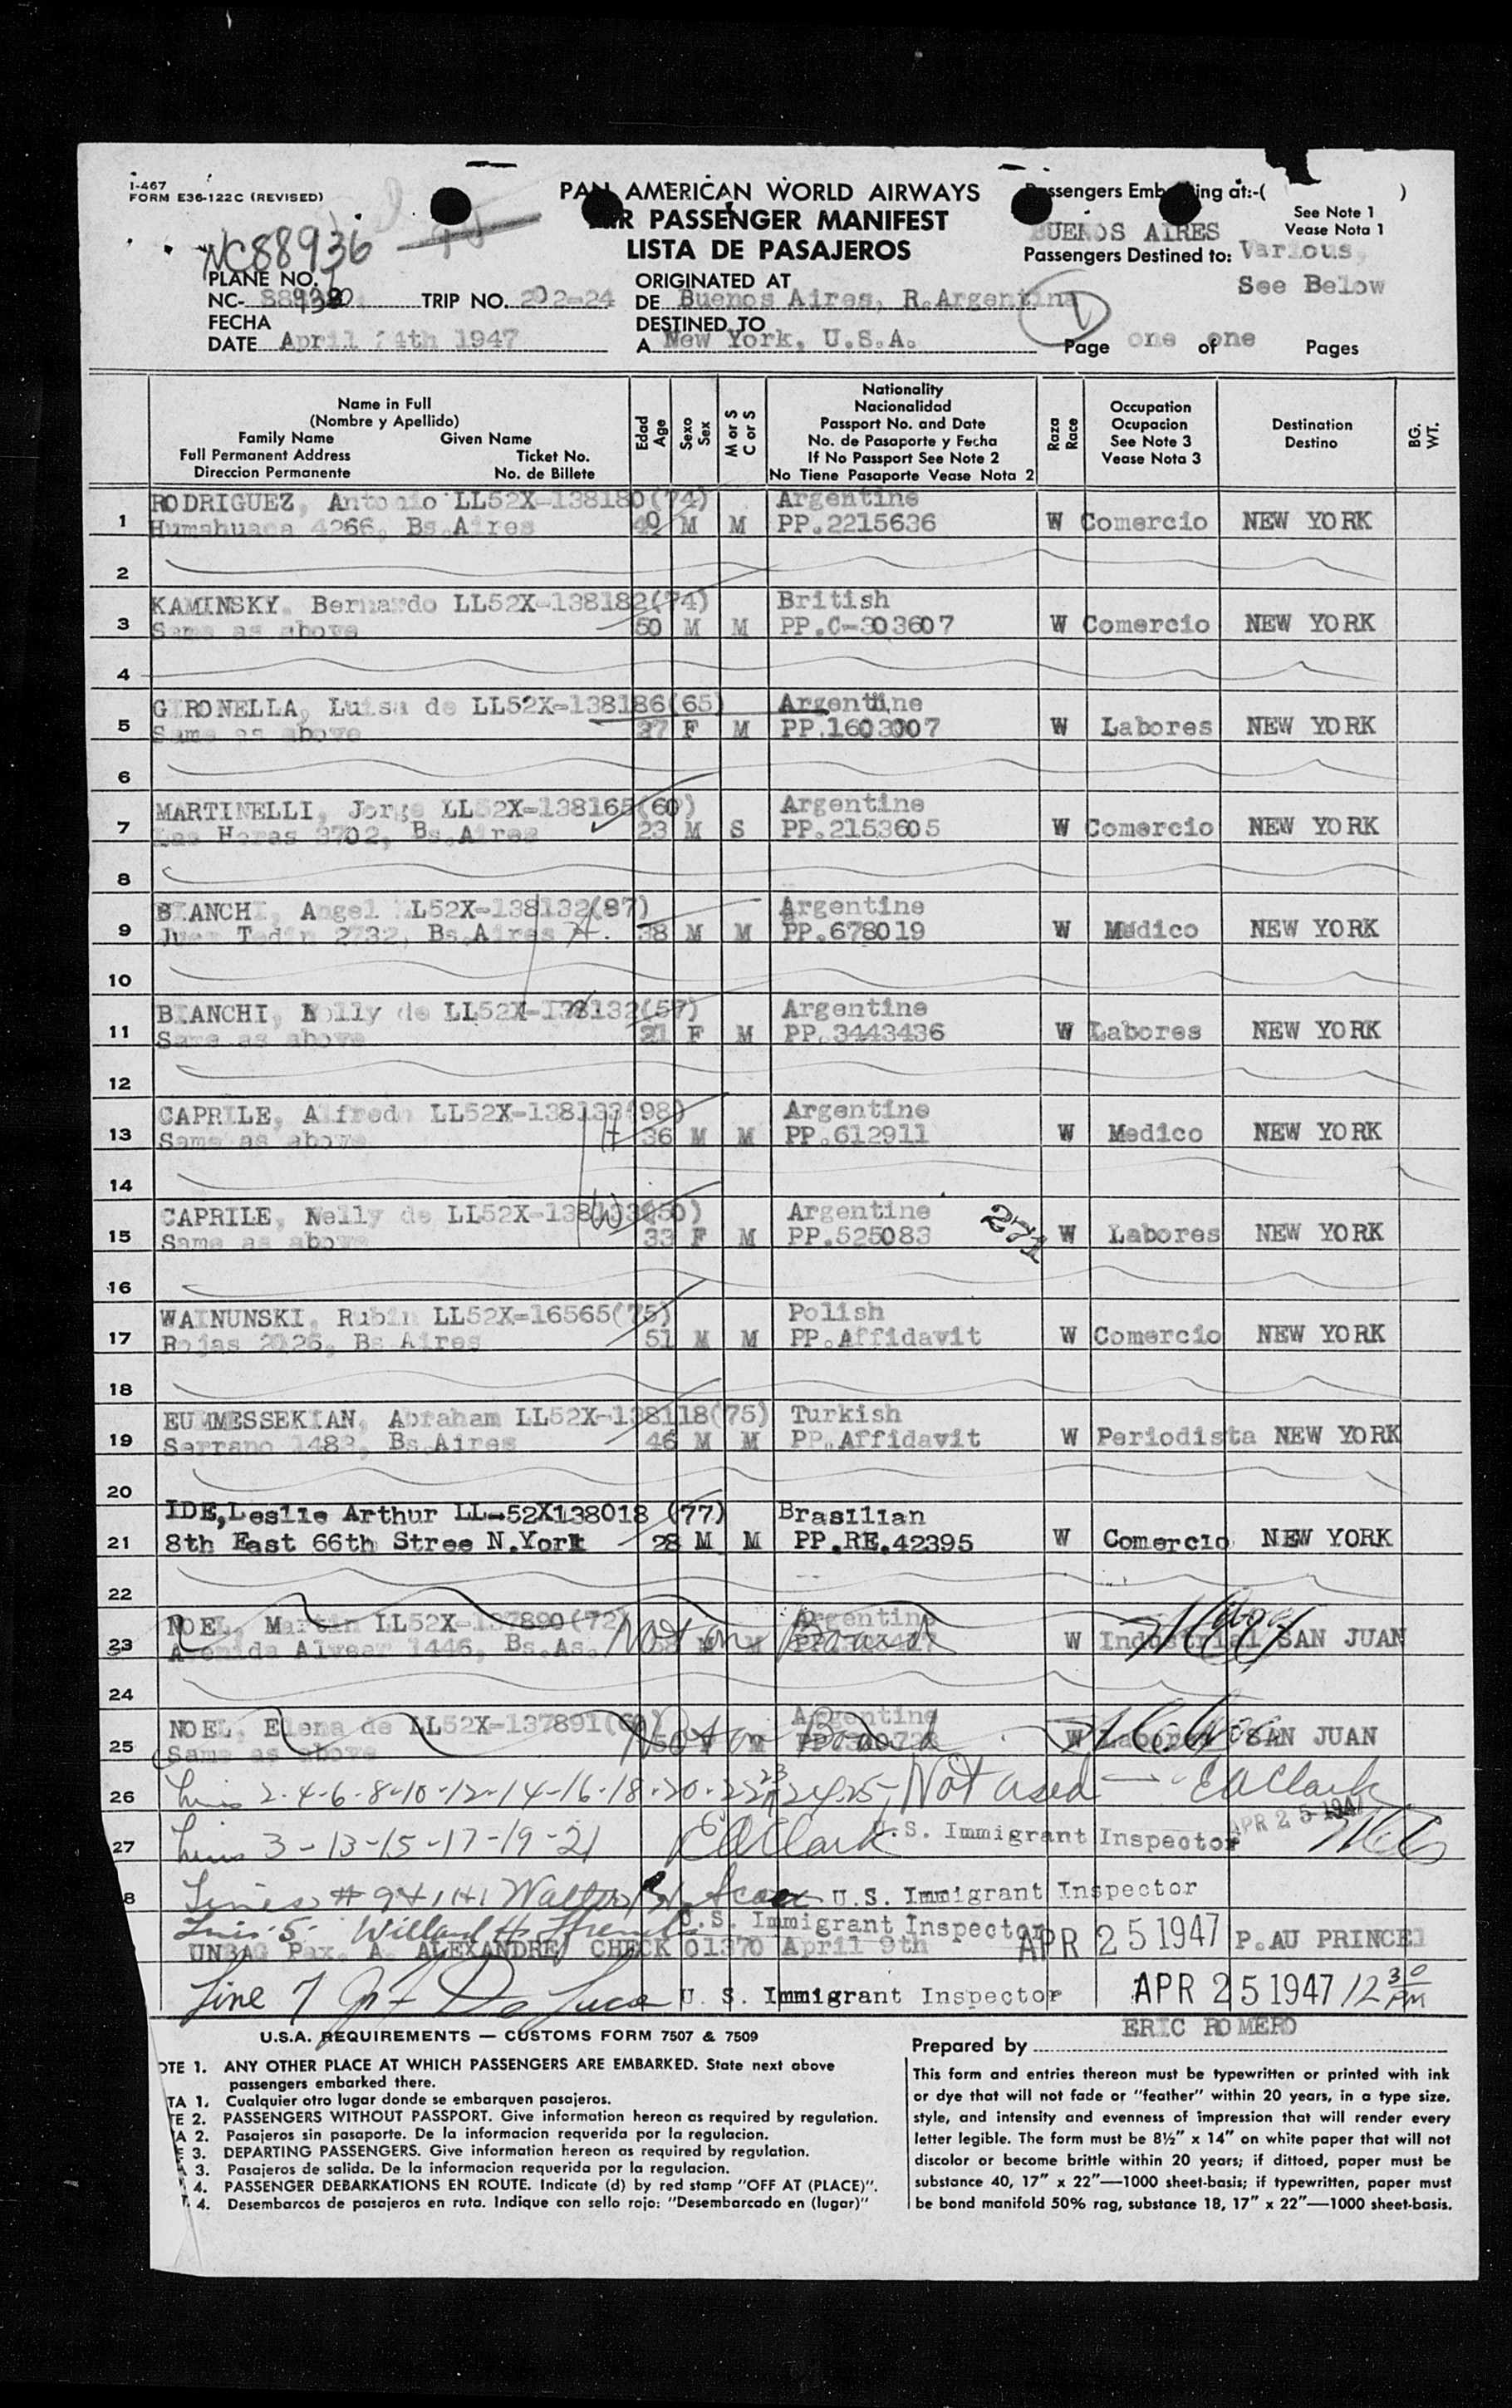 I-467
FORM E36-122C (REVISED)
NC88936
PAN AMERICAN WORLD AIRWAYS
AIR PASSENGER MANIFEST
LISTA DE PASAJEROS
Passengers Embarking at:-( )
See Note 1
Vease Nota 1
BUENOS AIRES
Passengers Destined to: Various,
See Below
PLANE NO.
NC-
TRIP NO. 202-24
ORIGINATED AT
DE Buenos Aires, R.Argentina
FECHA
DATE April 24th 1947
DESTINED TO
A New York, U.S.A.
Page one of one Pages
Name in Full
(Nombre y Apellido)
Family Name Given Name
Full Permanent Address Ticket No.
Direccion Permanente No. de Billete
Edad
Age
Sexo
Sex
M or S
C or S
Nationality
Nacionalidad
Passport No. and Date
No. de Pasaporte y Fecha
If No Passport See Note 2
No Tiene Pasaporte Vease Nota 2
Raza
Race
Occupation
Ocupacion
See Note 3
Vease Nota 3
Destination
Destino
BG.
WT.
RODRIGUEZ, Antonio LL52X-138180(74) Argentine
1 Humahuaca 4266, Bs.Aires 40 M M PP.2215636 W Comercio NEW YORK
2
KAMINSKY, Bernardo LL52X-138182(74) British
3 Same as above 50 M M PP.C-303607 W Comercio NEW YORK
4
GIRONELLA, Luisa de LL52X-138186(65) Argentine
5 Same as above 37 F M PP.1603007 W Labores NEW YORK
6
MARTINELLI, Jorge LL52X-138165(60) Argentine
7 Las Heras 3702, Bs.Aires 23 M S PP.2153605 W Comercio NEW YORK
8
BIANCHI, Angel LL52X-138132(87) Argentine
9 Juan Tedin 2732, Bs.Aires 38 M M PP.678019 W Medico NEW YORK
10
BIANCHI, Nelly de LL52X-138132(57) Argentine
11 Same as above 31 F M PP.3443436 W Labores NEW YORK
12
CAPRILE, Alfredo LL52X-138133(98) Argentine
13 Same as above 36 M M PP.612911 W Medico NEW YORK
14
CAPRILE, Nelly de LL52X-138133(50) Argentine
15 Same as above 33 F M PP.525083 271 W Labores NEW YORK
16
WAINUNSKI, Rubin LL52X-16565(75) Polish
17 Rojas 2026, Bs Aires 51 M M PP.Affidavit W Comercio NEW YORK
18
EUMMESSEKIAN, Abraham LL52X-138118(75) Turkish
19 Serrano 1483, Bs.Aires 46 M M PP.Affidavit W Periodista NEW YORK
20
IDE,Leslie Arthur LL-52X138018 (77) Brasilian
21 8th East 66th Stree N.York 28 M M PP.RE.42395 W Comercio NEW YORK
22
NOEL, Martin LL52X-137890(72) Argentine
23 Avenida Alvear 1446, Bs.As. Not on Board W Industrial SAN JUAN
24
NOEL, Elena de LL52X-137891 Argentine
25 Same as above Not on Board W Labores SAN JUAN
26 Lines 2-4-6-8-10-12-14-16-18-20-22 23 24 25 Not used — EA Clark
APR 25 1947
27 Lines 3-13-15-17-19-21 EA Clark U.S. Immigrant Inspector
8 Lines # 9 & 11 Walter U.S. Immigrant Inspector
Line 5 Willard H. U.S. Immigrant Inspector
UNBAG Pax. A. ALEXANDRE CHECK 01370 April 9th APR 25 1947 P.AU PRINCE
Line 7 De Luca U. S. Immigrant Inspector APR 25 1947 12 30 PM
U.S.A. REQUIREMENTS — CUSTOMS FORM 7507 & 7509
OTE 1. ANY OTHER PLACE AT WHICH PASSENGERS ARE EMBARKED. State next above
passengers embarked there.
TA 1. Cualquier otro lugar donde se embarquen pasajeros.
TE 2. PASSENGERS WITHOUT PASSPORT. Give information hereon as required by regulation.
A 2. Pasajeros sin pasaporte. De la informacion requerida por la regulacion.
E 3. DEPARTING PASSENGERS. Give information hereon as required by regulation.
A 3. Pasajeros de salida. De la informacion requerida por la regulacion.
4. PASSENGER DEBARKATIONS EN ROUTE. Indicate (d) by red stamp "OFF AT (PLACE)".
4. Desembarcos de pasajeros en ruta. Indique con sello rojo: "Desembarcado en (lugar)"
ERIC ROMERO
Prepared by
This form and entries thereon must be typewritten or printed with ink
or dye that will not fade or "feather" within 20 years, in a type size,
style, and intensity and evenness of impression that will render every
letter legible. The form must be 8½" x 14" on white paper that will not
discolor or become brittle within 20 years; if dittoed, paper must be
substance 40, 17" x 22"—1000 sheet-basis; if typewritten, paper must
be bond manifold 50% rag, substance 18, 17" x 22"—1000 sheet-basis.